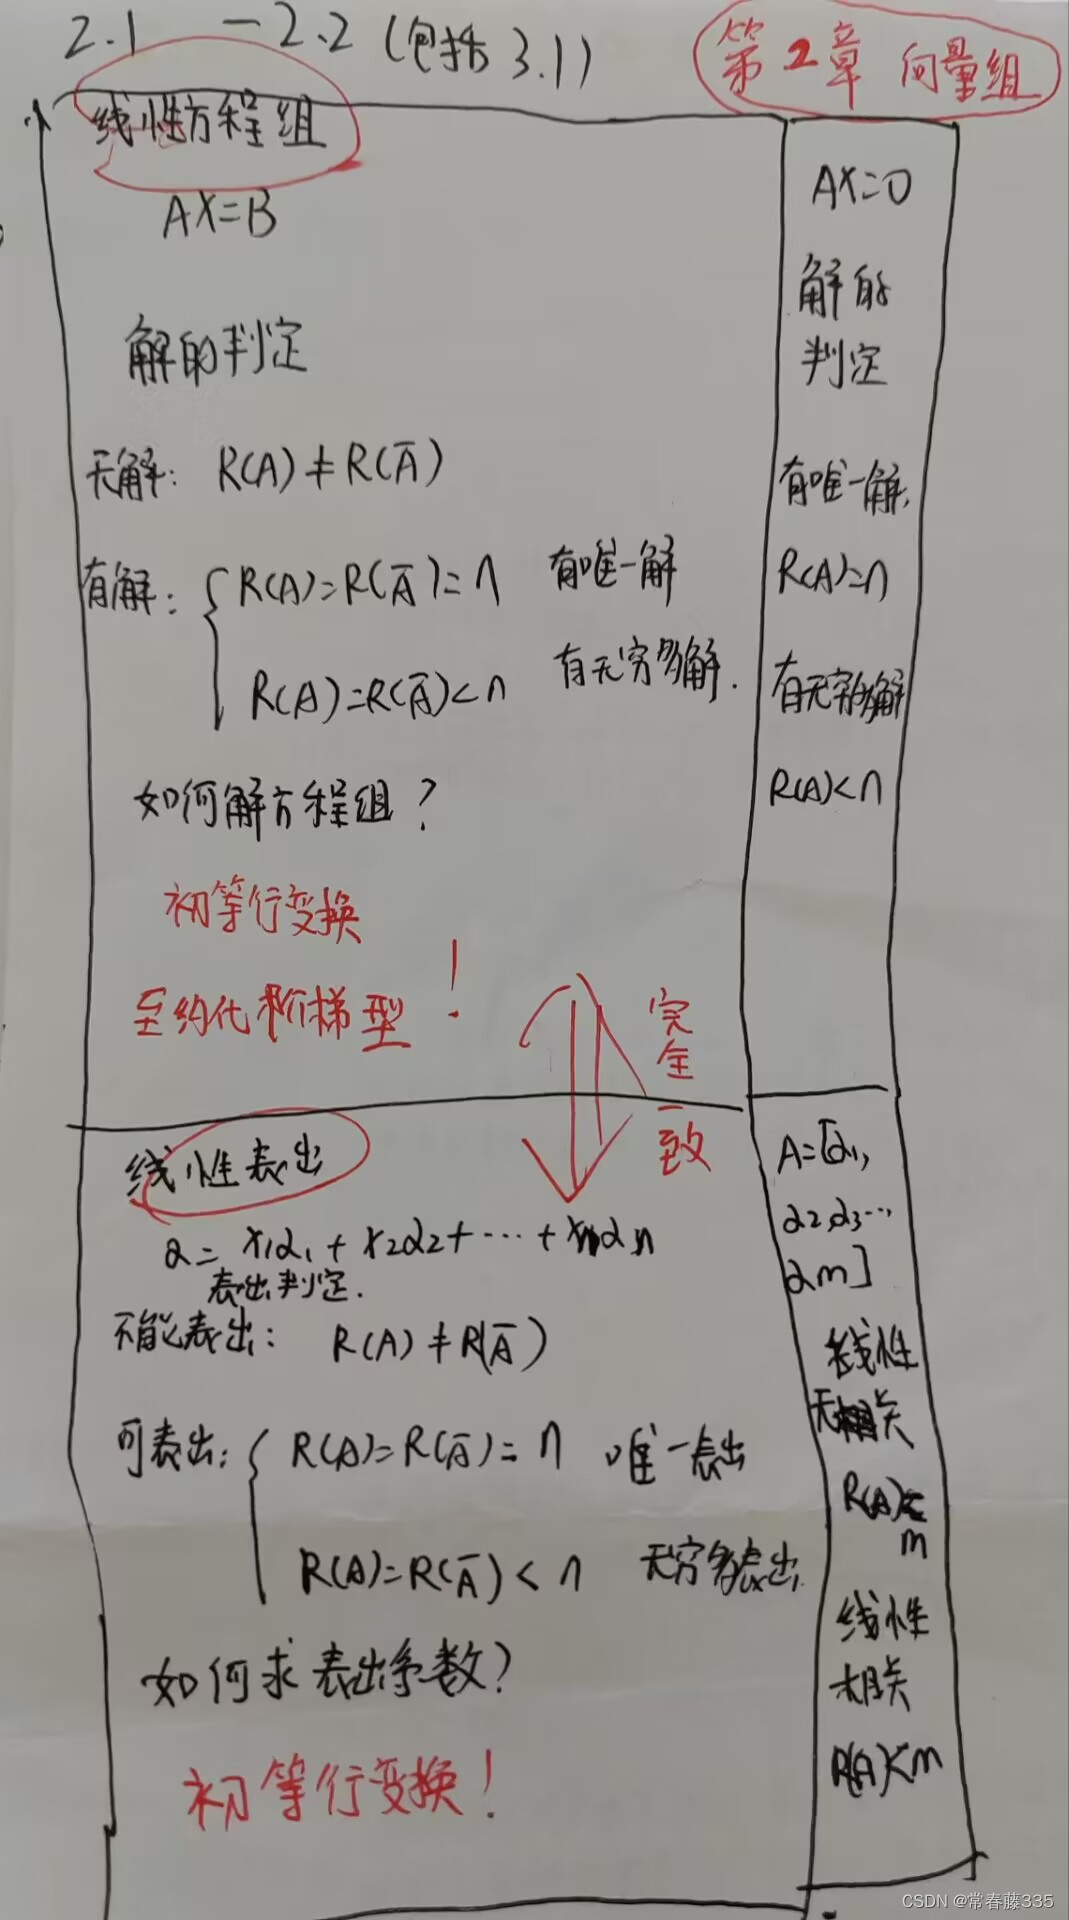 2.1 — 2.2 (包括 3.1)
第2章 向量组
线性方程组
AX=B
解的判定
无解: R(A)≠R(Ā)
有解: { R(A)=R(Ā)=n 有唯一解
R(A)=R(Ā)<n 有无穷多解.
如何解方程组?
初等行变换
至约化阶梯型!
AX=0
解的
判定
有唯一解,
R(A)=n
有无穷多解
R(A)<n
完全一致
线性表出
α= x₁α₁+x₂α₂+⋯+xₙαₙ
表出判定.
不能表出: R(A)≠R(Ā)
可表出: { R(A)=R(Ā)=n 唯一表出
R(A)=R(Ā)<n 无穷多表出.
如何求表出系数?
初等行变换!
A=[α₁,
α₂,α₃⋯
αm]
线性
无关
R(A)=
m
线性
相关
R(A)<m
CSDN @常春藤335